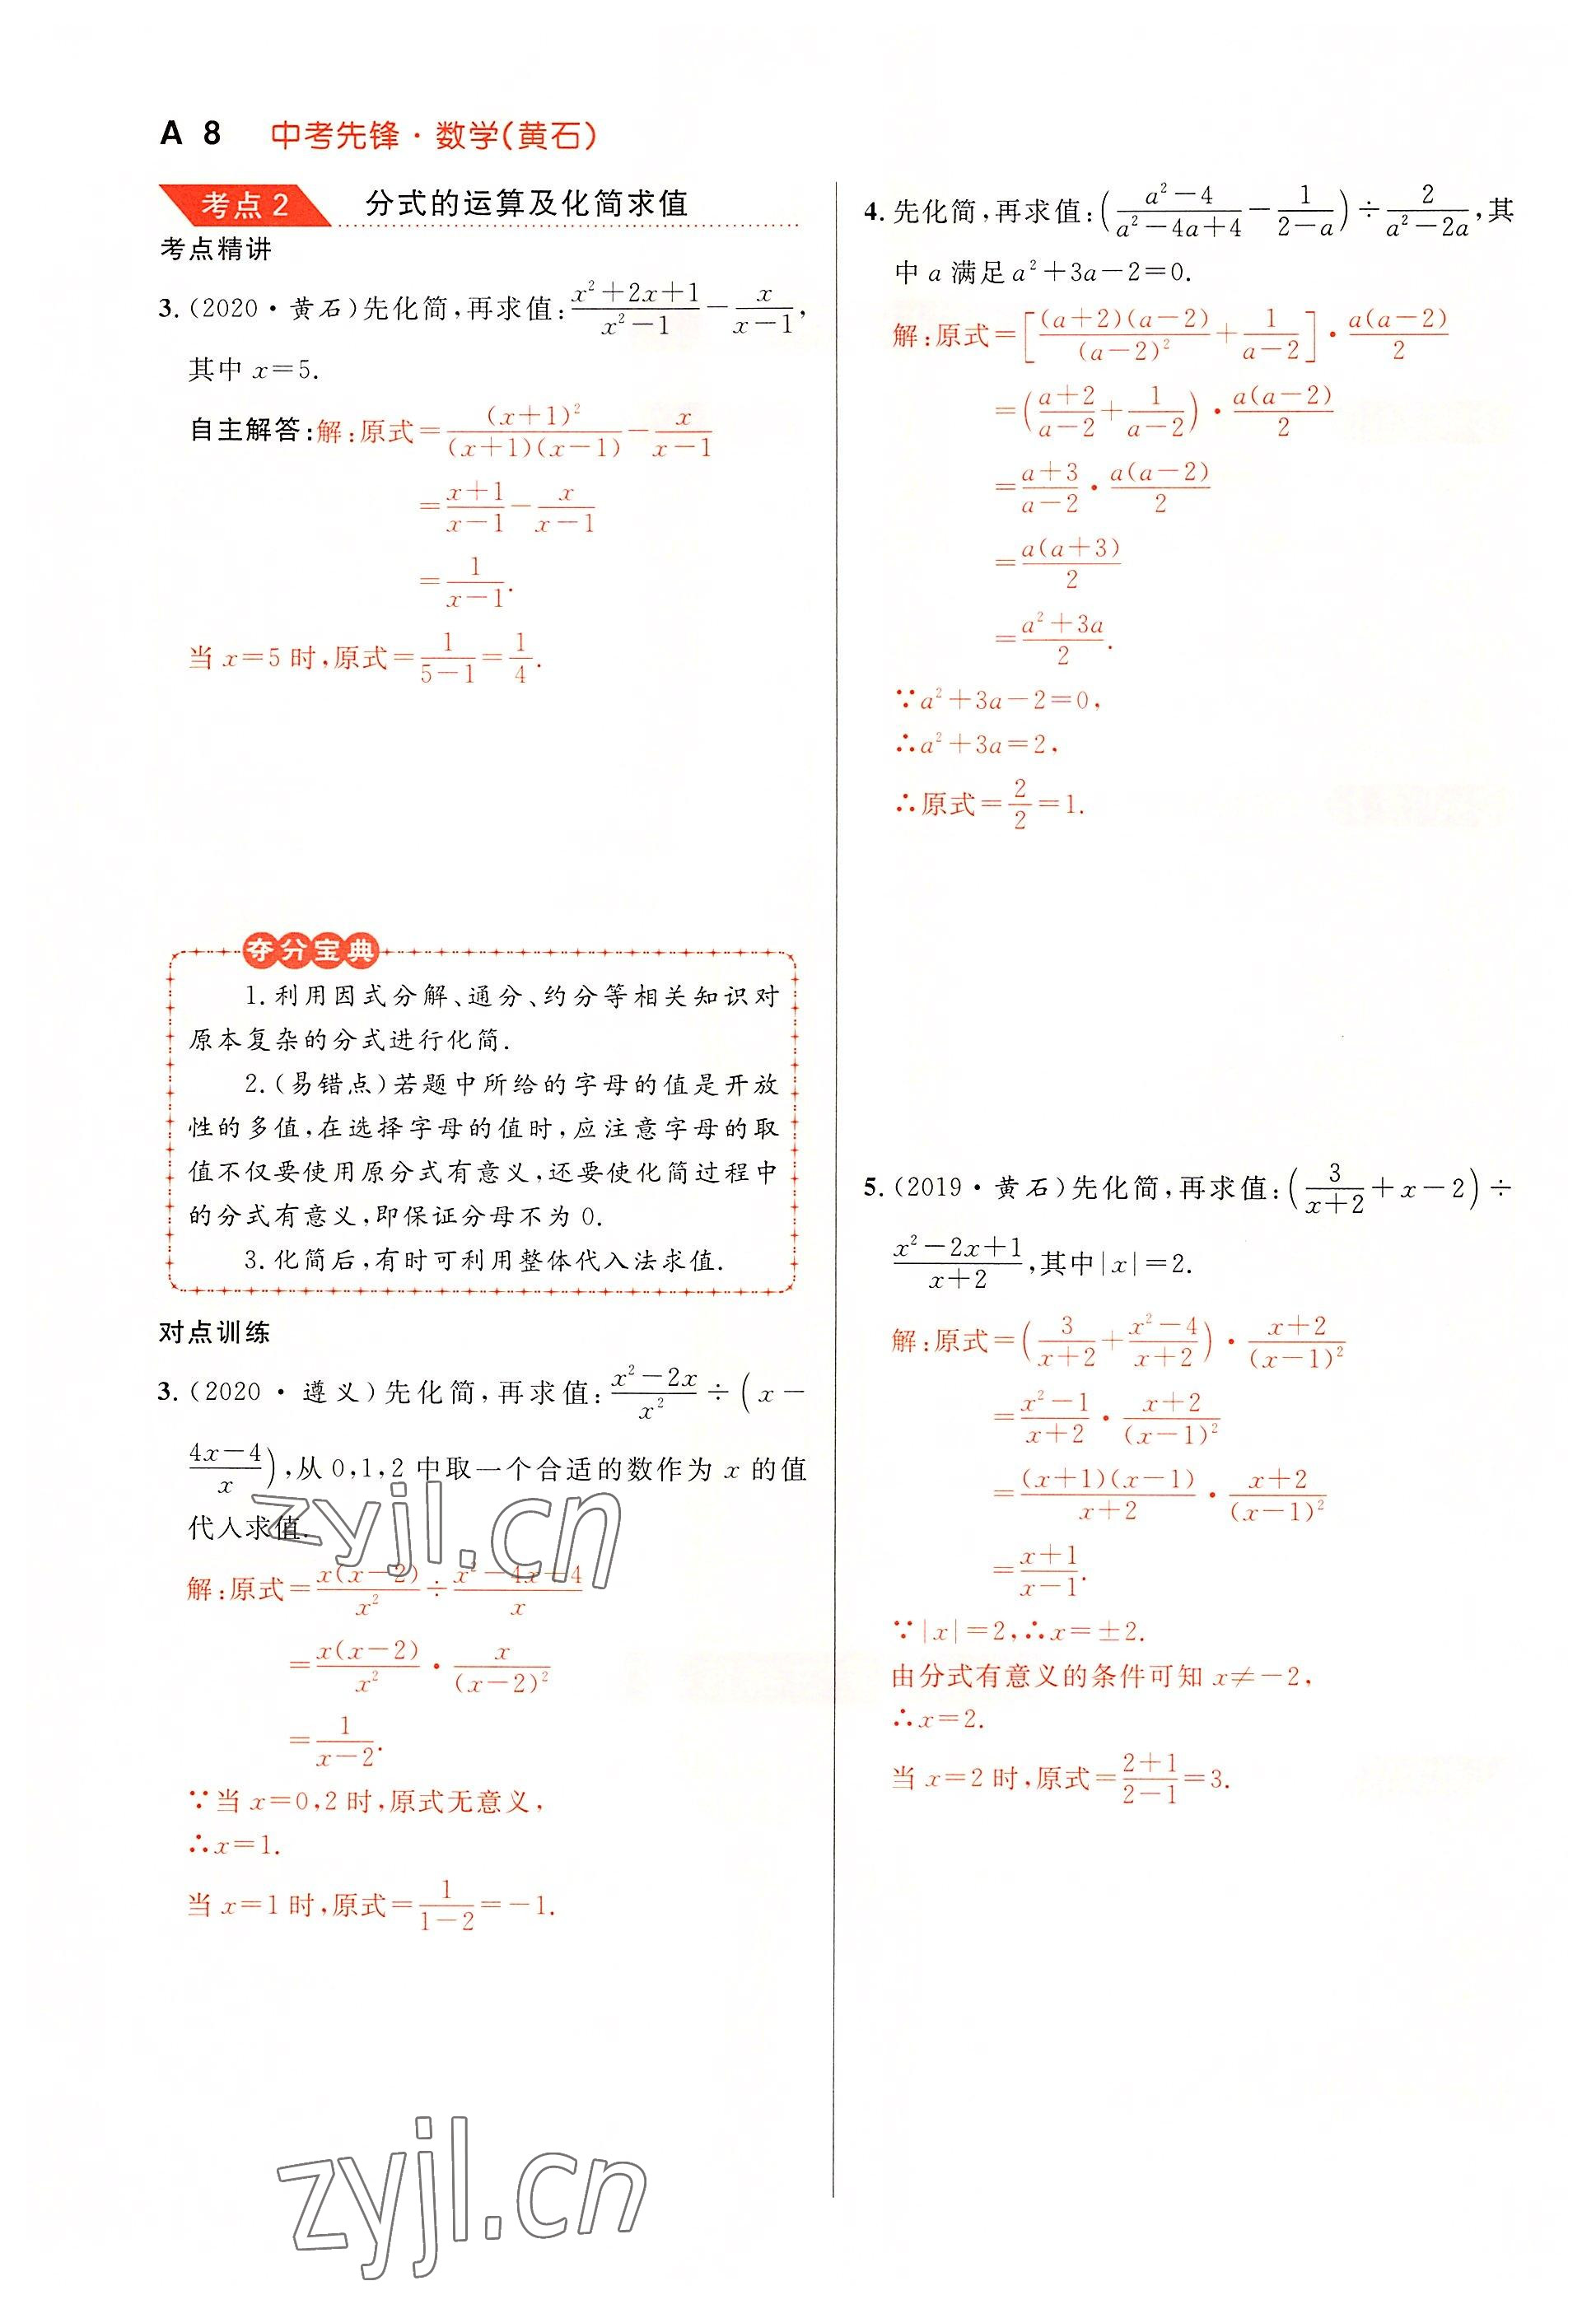 A 8 中考先锋·数学(黄石)
考点2 分式的运算及化简求值
考点精讲
3.(2020·黄石)先化简,再求值:\frac{x²+2x+1}{x²-1}-\frac{x}{x-1},
其中 x=5.
自主解答:解:原式=\frac{(x+1)²}{(x+1)(x-1)}-\frac{x}{x-1}
=\frac{x+1}{x-1}-\frac{x}{x-1}
=\frac{1}{x-1}.
当 x=5 时,原式=\frac{1}{5-1}=\frac{1}{4}.
夺分宝典
1.利用因式分解、通分、约分等相关知识对
原本复杂的分式进行化简.
2.(易错点)若题中所给的字母的值是开放
性的多值,在选择字母的值时,应注意字母的取
值不仅要使用原分式有意义,还要使化简过程中
的分式有意义,即保证分母不为 0.
3.化简后,有时可利用整体代入法求值.
对点训练
3.(2020·遵义)先化简,再求值:\frac{x²-2x}{x²}÷(x-
\frac{4x-4}{x}),从 0,1,2 中取一个合适的数作为 x 的值
代人求值.
解:原式=\frac{x(x-2)}{x²}÷\frac{x²-4x+4}{x}
=\frac{x(x-2)}{x²}·\frac{x}{(x-2)²}
=\frac{1}{x-2}.
∵当 x=0,2 时,原式无意义,
∴x=1.
当 x=1 时,原式=\frac{1}{1-2}=-1.
4.先化简,再求值:(\frac{a²-4}{a²-4a+4}-\frac{1}{2-a})÷\frac{2}{a²-2a},其
中 a 满足 a²+3a-2=0.
解:原式=[\frac{(a+2)(a-2)}{(a-2)²}+\frac{1}{a-2}]·\frac{a(a-2)}{2}
=(\frac{a+2}{a-2}+\frac{1}{a-2})·\frac{a(a-2)}{2}
=\frac{a+3}{a-2}·\frac{a(a-2)}{2}
=\frac{a(a+3)}{2}
=\frac{a²+3a}{2}.
∵a²+3a-2=0,
∴a²+3a=2,
∴原式=\frac{2}{2}=1.
5.(2019·黄石)先化简,再求值:(\frac{3}{x+2}+x-2)÷
\frac{x²-2x+1}{x+2},其中|x|=2.
解:原式=(\frac{3}{x+2}+\frac{x²-4}{x+2})·\frac{x+2}{(x-1)²}
=\frac{x²-1}{x+2}·\frac{x+2}{(x-1)²}
=\frac{(x+1)(x-1)}{x+2}·\frac{x+2}{(x-1)²}
=\frac{x+1}{x-1}.
∵|x|=2,∴x=±2.
由分式有意义的条件可知 x≠-2,
∴x=2.
当 x=2 时,原式=\frac{2+1}{2-1}=3.
zyjl.cn
zyjl.cn